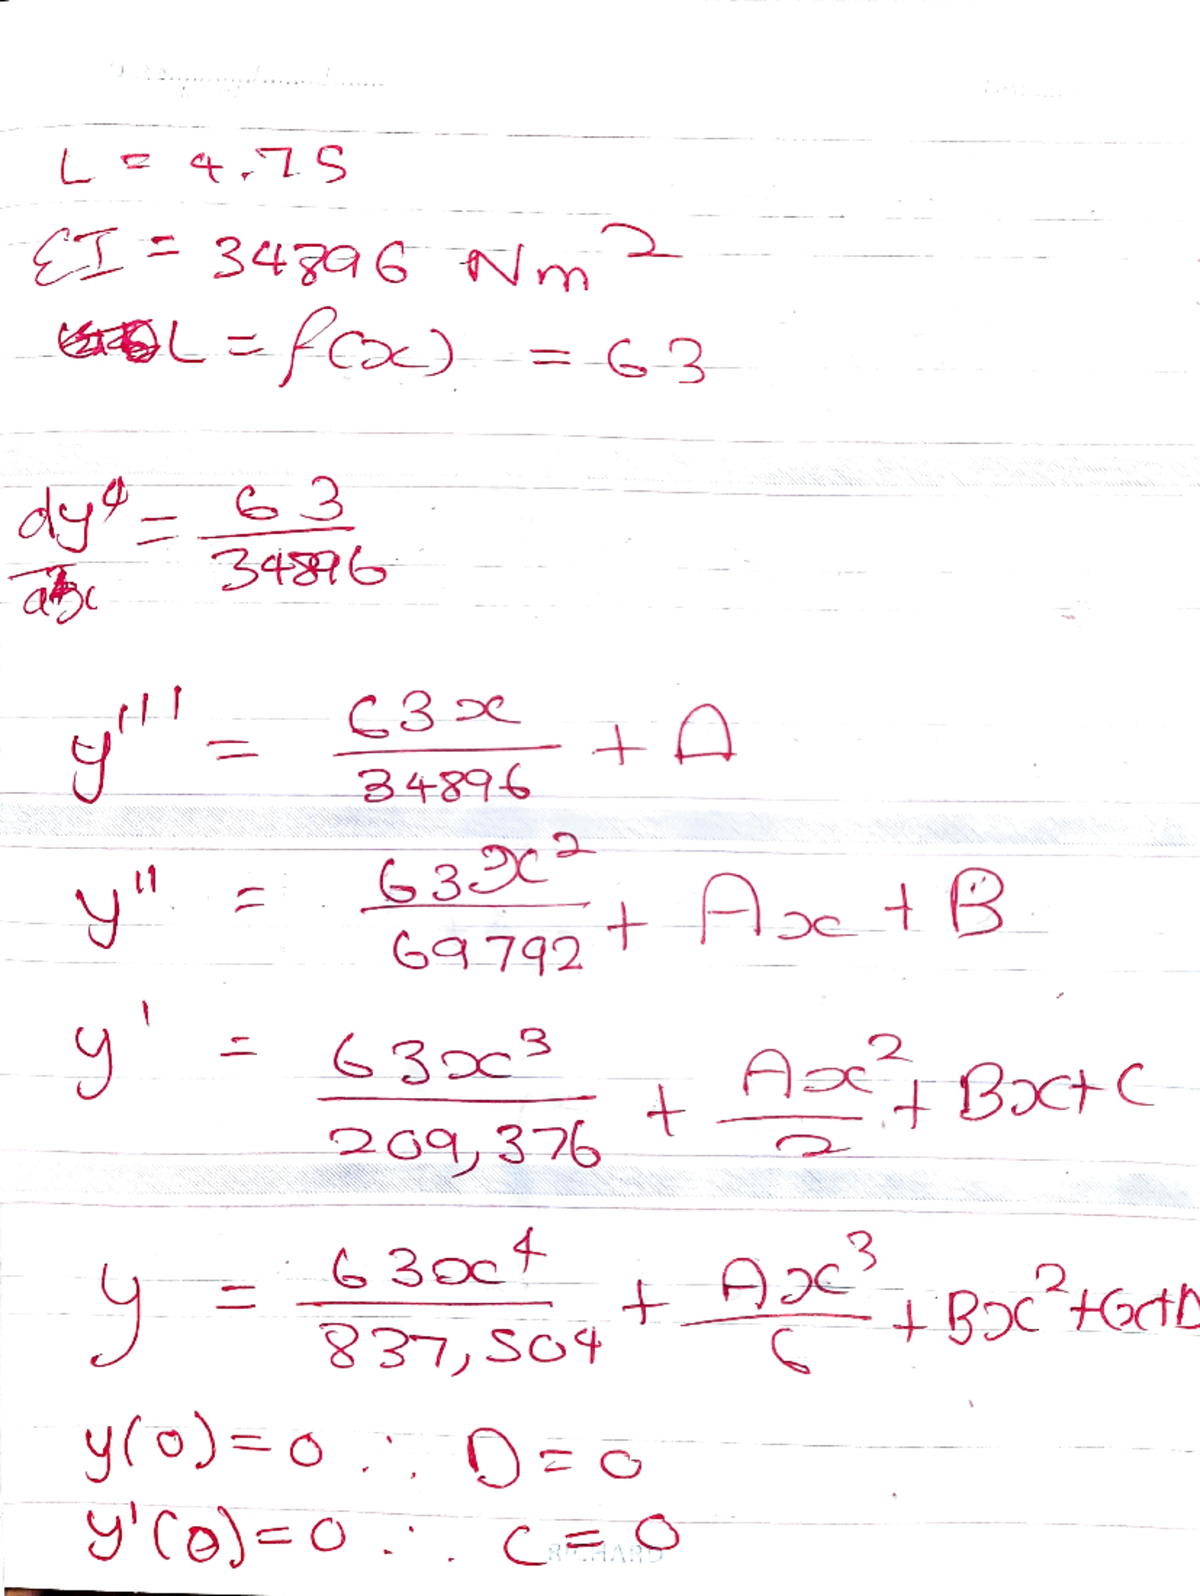 L = 4.75
EI = 34896 Nm²
L = f(x) = 63
dy⁴ = 63
34896
y''' = 63x/34896 + A
y'' = 63x²/69792 + Ax + B
y' = 63x³/209,376 + Ax²/2 + Bx + C
y = 63x⁴/837,504 + Ax³/6 + Bx² + Cx + D
y(0) = 0 ∴ D = 0
y'(0) = 0 ∴ C = 0